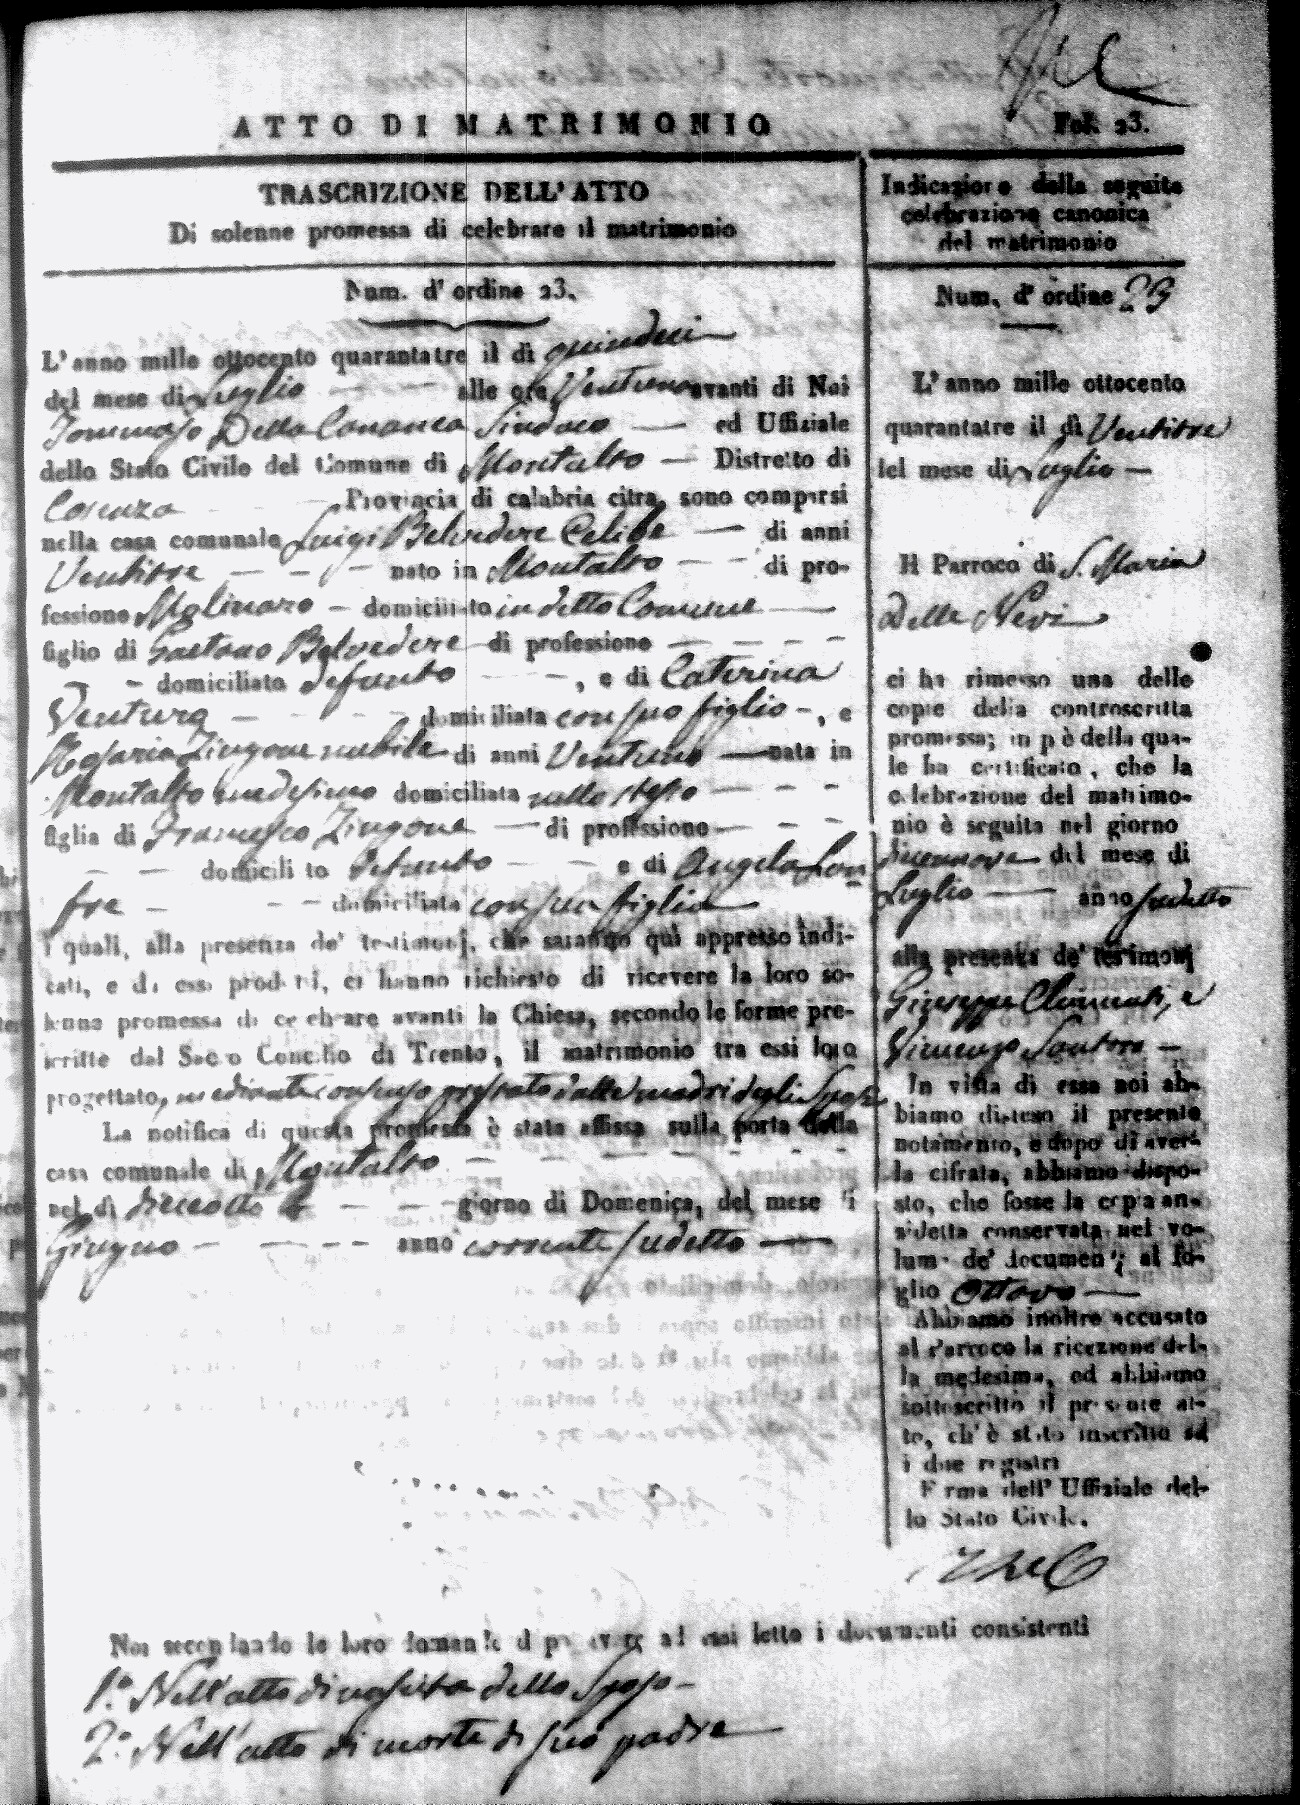 ATTO DI MATRIMONIO
Fol. 23.
TRASCRIZIONE DELL'ATTO
Di solenne promessa di celebrare il matrimonio
Num. d'ordine 23.
L'anno mille ottocento quarantatre il dì quindeci
del mese di Luglio alle ore Ventuno avanti di Noi
Tommaso Della Cananea Sindaco ed Uffiziale
dello Stato Civile del Comune di Montalto Distretto di
Cosenza Provincia di calabria citra, sono comparsi
nella casa comunale Luigi Belvedere Celibe di anni
Ventitre nato in Montalto di pro-
fessione Molinaro domiciliato in detto Comune
figlio di Gaetano Belvedere di professione
domiciliato defunto, e di Caterina
Ventura domiciliata con suo figlio, e
Rosaria Zingone nubile di anni Ventuno nata in
Montalto medesimo domiciliata nello stesso
figlia di Francesco Zingone di professione
domicili to defunto e di Angela
domiciliata con sua figlia
i quali, alla presenza de' testimonj, che saranno quì appresso indi-
cati, e da essi prodotti, ci hanno richiesto di ricevere la loro so-
lenne promessa di celebrare avanti la Chiesa, secondo le forme pre-
scritte dal Sacro Concilio di Trento, il matrimonio tra essi loro
progettato, mediante consenso prestato dalle madri degli Sposi
La notifica di questa promessa è stata affissa sulla porta della
casa comunale di Montalto
nel dì dieciotto giorno di Domenica, del mese di
Giugno anno corrente sudetto
Noi secondando le loro domande d po averg ad essi letto i documenti consistenti
1.° Nell'atto di nascita dello Sposo
2.° Nell'atto di morte di suo padre
Indicazione della seguita
celebrazione canonica
del matrimonio
Num. d'ordine 23
L'anno mille ottocento
quarantatre il dì Ventitre
del mese di Luglio
Il Parroco di S. Maria
Delle Nevi
ci ha rimesso una delle
copie della controscritta
promessa; in piè della qua-
le ha certificato, che la
celebrazione del matrimo-
nio è seguita nel giorno
diecinove del mese di
Luglio anno sudetto
alla presenza de' testimonj
Giuseppe Clementi, e
Vincenzo Santoro
In vista di essa noi ab-
biamo disteso il presente
notamento, e dopo di aver-
la cifrata, abbiamo dispo-
sto, che fosse la copia an-
zidetta conservata nel vo-
lume de' documenti al fo-
glio Ottavo
Abbiamo inoltre accusato
al Parroco la ricezione del-
la medesima, ed abbiamo
sottoscritto il presente at-
to, ch'è stato inscritto ad
i due registri
Firma dell'Uffiziale del-
lo Stato Civile.